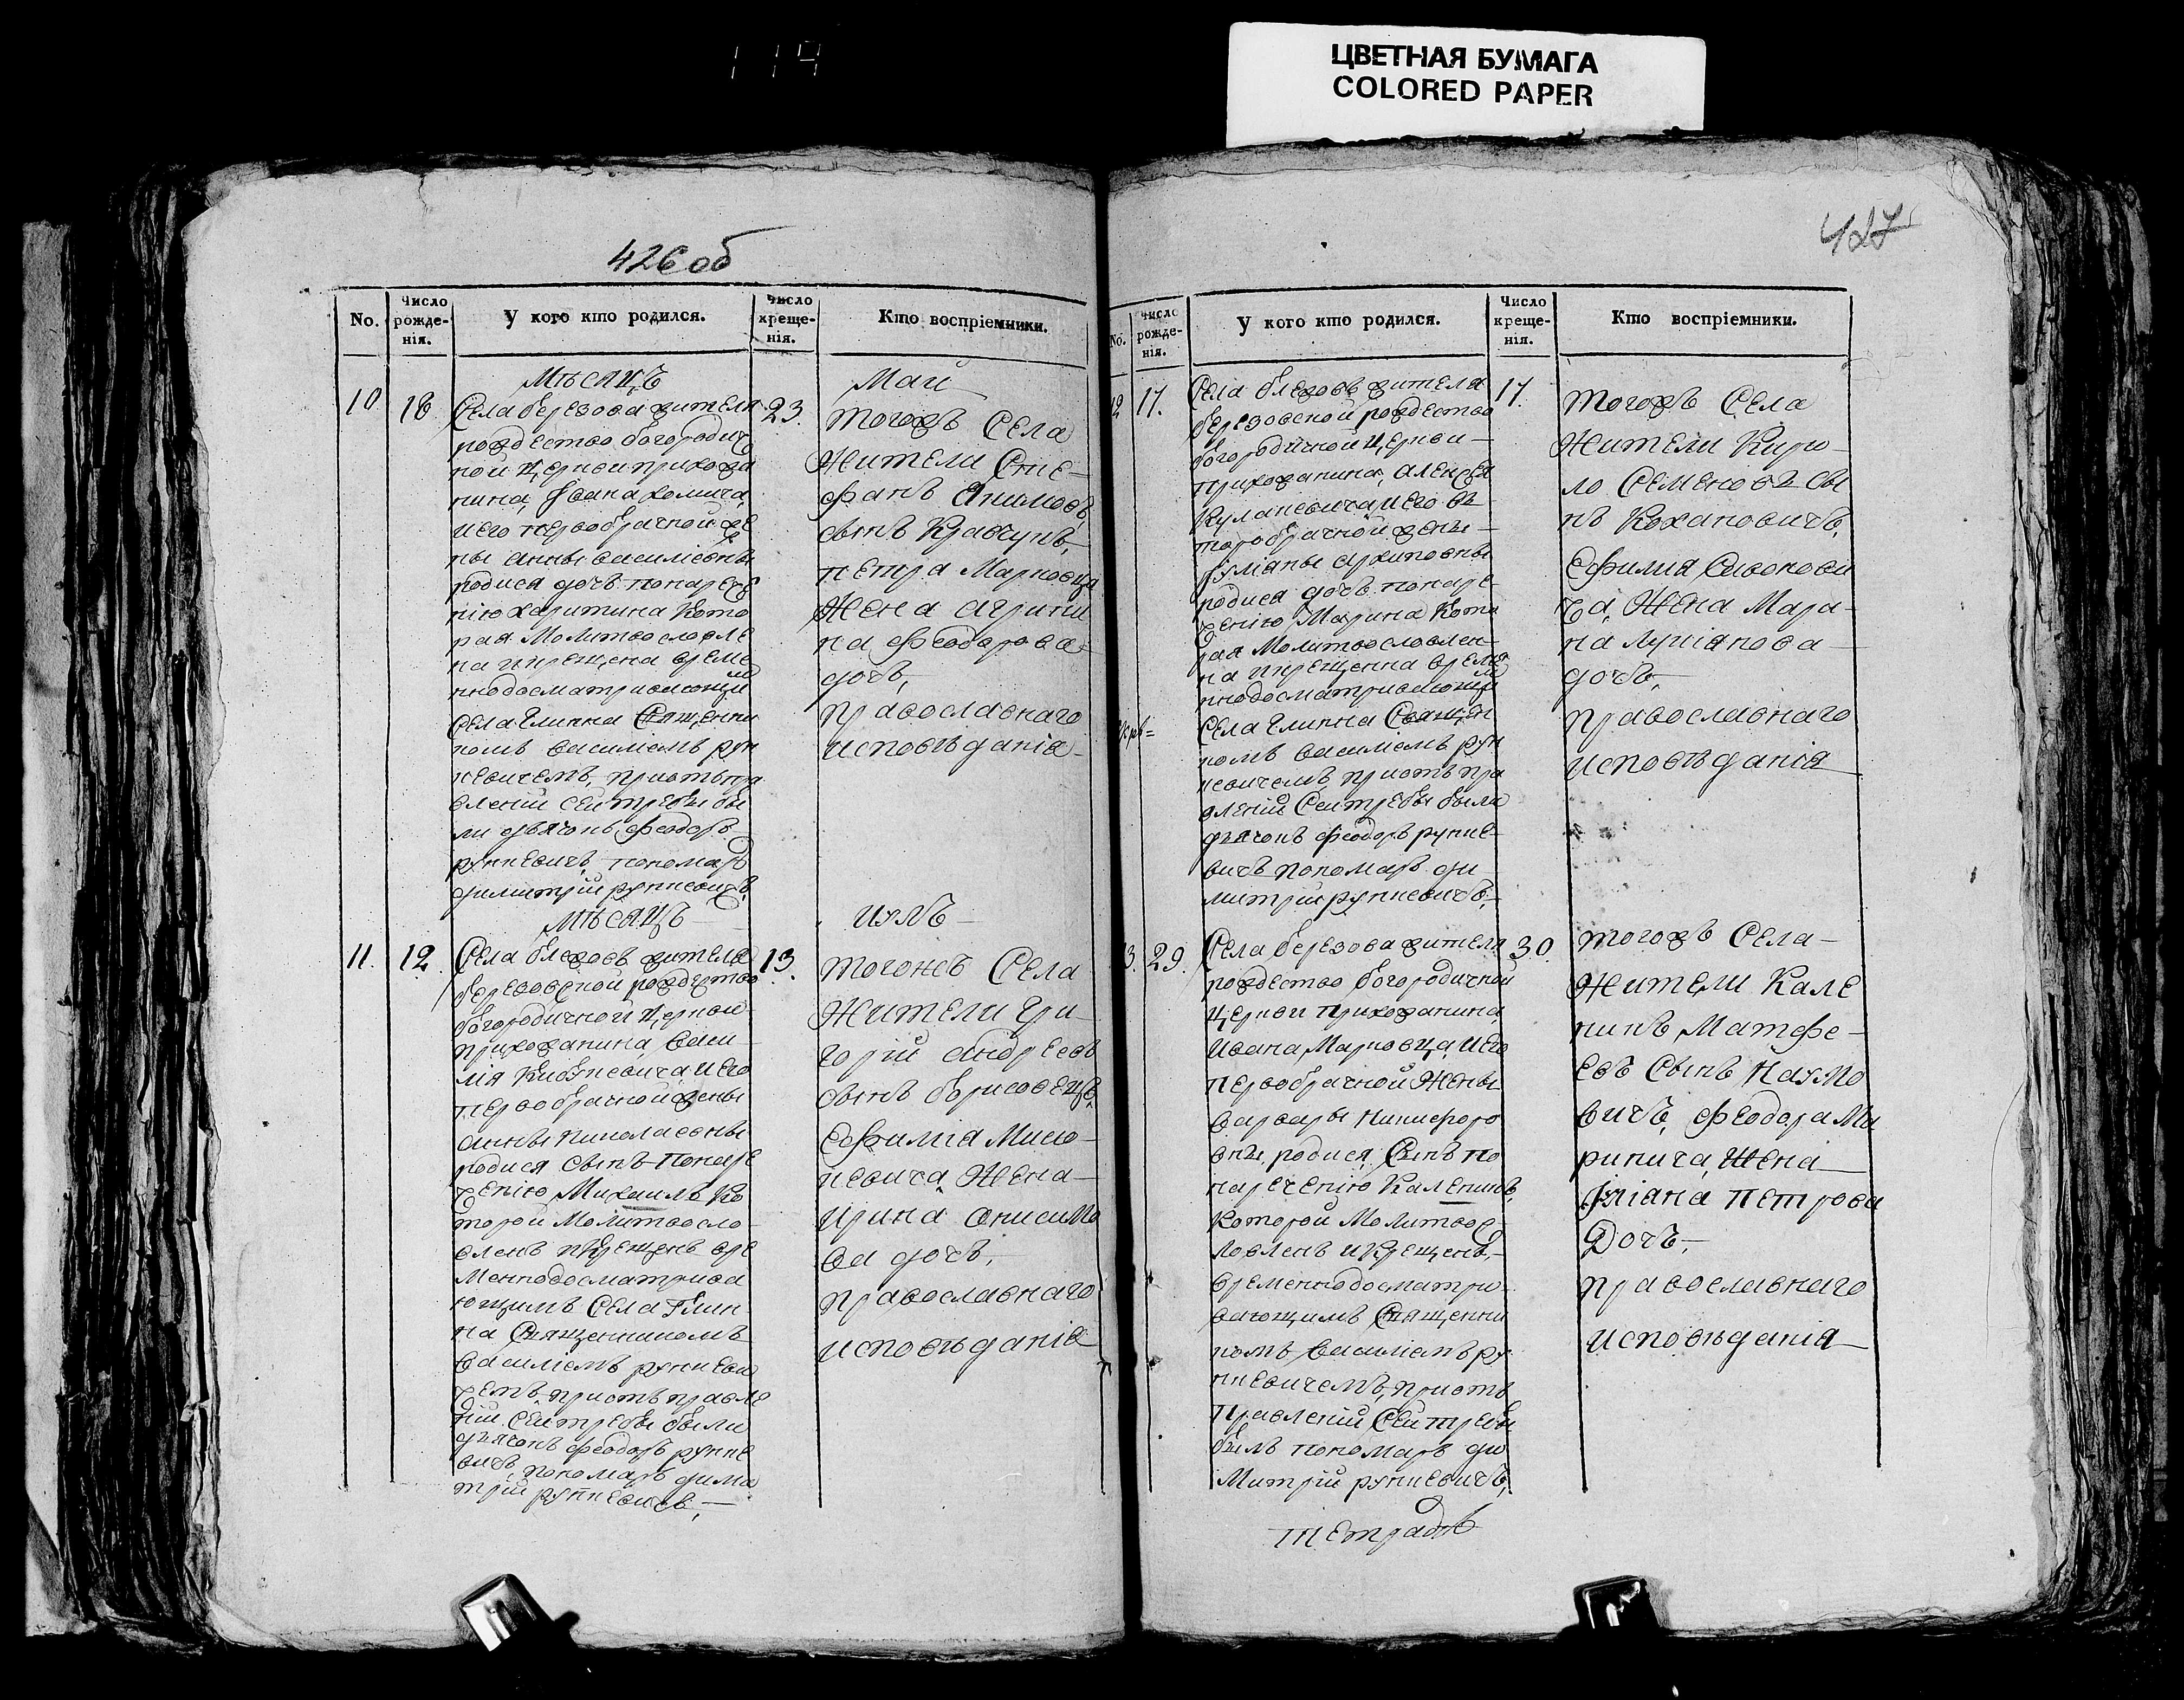 114
ЦВЕТНАЯ БУМАГА
COLORED PAPER
426 об
No.
Число рожде-нія.
У кого кто родился.
Число креще-нія.
Кто воспріемники.
Мѣсяцъ
Май
10
18
23.
Села березова жителя
рождество богородич
ной церкви прихожа
нина,
и его первобрачной же
ны анны василіевны
родися дочь по нарече
нію харитина кото
рая Молитвословле
на и крещена време
ннодосматривающим
Села Глинна Священни
комъ василіемъ рун
кевичемъ, при отьпра
вленіи сей требы бы
ли дьячокъ феодоръ
рункевичъ, пономарь
димитрій рункевичъ,
тогожъ Села
Жители Сте-
фанъ
сынъ Кравчукъ,
петра Марковца
Жена агрипи
на феодорова
дочь,
православнаго
исповѣданія
Мѣсяцъ
июль
11.
12.
13.
Села жителя
березовской рождество
богородичной церкви
прихожанина, васи
лія и его
первобрачной жены
анны николаевны
родися сынъ по наре
ченію Михаилъ ко
торой Молитвосло
вленъ и крещенъ вре
Меннодосматрива
ющимъ Села Глин
на Священникомъ
василіемъ рункеви
чемъ, при отьправле
ніи сей требы были
дьячокъ феодоръ рунке
вичъ, пономарь дими
трій рункевичъ,
тогожъ Села
Жители Гри-
горій андреевъ
сынъ борисовецъ,
Ефимія Мисю-
кевича, Жена
ирина онисимо
ва дочь,
православнаго
исповѣданія
427
No.
Число рожде-нія.
У кого кто родился.
Число креще-нія.
Кто воспріемники.
12
17.
17.
Села жителя
березовской рождество
богородичной церкви
прихожанина, алексея
и его в
торобрачной жены
Іуліаны архиповны
родися дочь по наре
ченію Марина кото
рая Молитвословлен
на и крещенна време
ннодосматривающим
Села Глинна Священ
комъ василіемъ рун
кевичемъ, при отьпра
вленіи Сей требы были
дьячокъ феодоръ рунке
вичъ пономарь ди
митрій рункевичъ,
тогожъ Села
Жители Кири-
ло Семеновъ сы
нъ Кохановичъ,
Ефимія
ча, Жена Мари-
на лукіанова
дочь,
православнаго
исповѣданія
3.
29.
30.
Села березова жителя
рождество богородичной
церкви прихожанина,
ивана Марковца, и его
первобрачной Жены
варвары никифоро
вны, родися, Сынъ по
нареченію Каленикъ,
которой Молитвос
ловленъ и крещенъ,
временнодосматри
вающимъ Священни
комъ василіемъ ру
нкевичемъ, при отъ
правленіи Сей требы
былъ пономарь ди
Митрій рункевичъ,
тогожъ Села
Жители Кале
никъ Матфе-
евъ Сынъ Наумо
вичъ, феодора Ми
Жена
Іуліана петрова
Дочь,
православнаго
исповѣданія
тетрадь